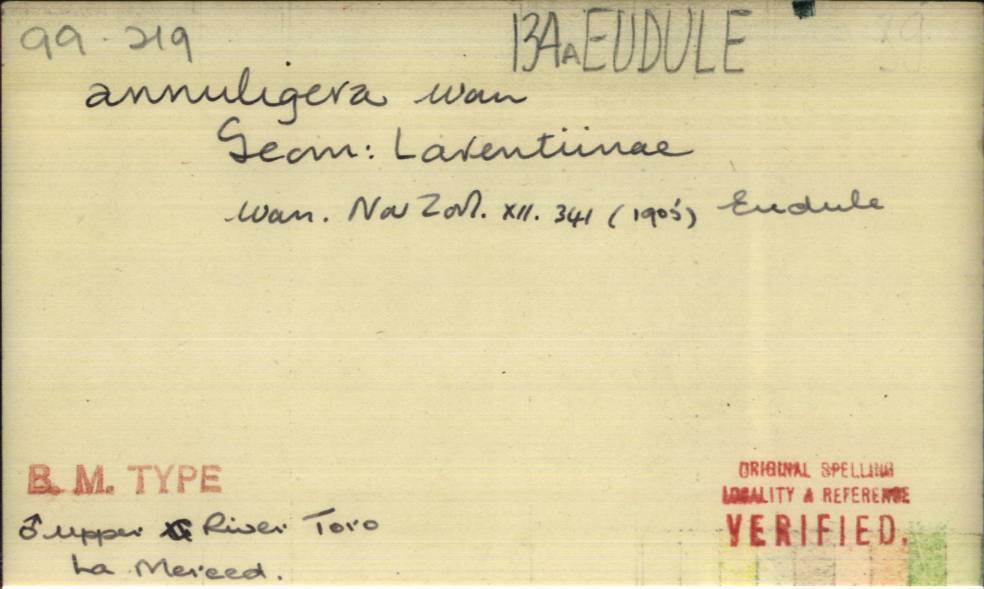 99·219
13AA EUDULE
annuligera Warr
Geom: Larentiinae
Warr. Nov Zool. XII. 341 (1905) Eudule
B. M. TYPE
♂ upper River Toro
La Merced.
ORIGINAL SPELLING
LOCALITY & REFERENCE
VERIFIED.